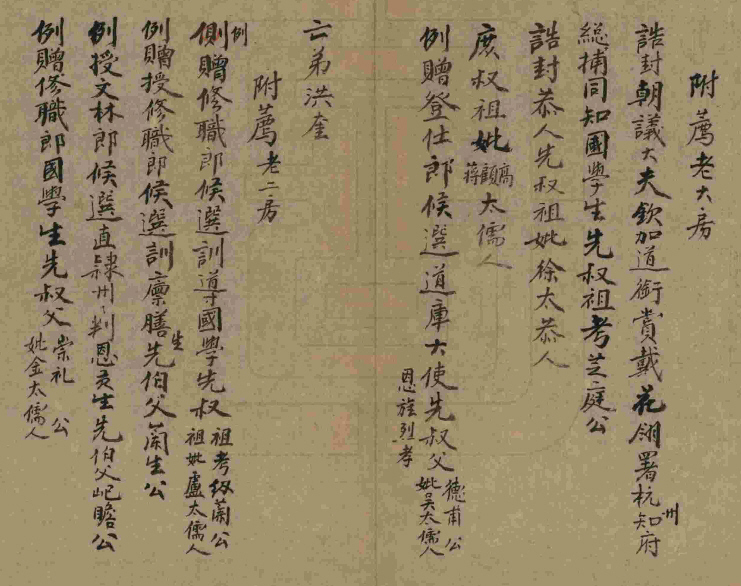 附薦老大房
誥封朝議大夫欽加道銜賞戴花翎署杭州知府
総捕同知國學生先叔祖考芝庭公
誥封恭人先叔祖妣徐太恭人
庶叔祖妣高顧蔣太儒人
例贈登仕郎候選道庫大使先叔父德甫公妣吳太儒人
恩旌烈孝
亡弟洪奎
附薦老二房
例贈修職郎候選訓導國學先叔祖考紉蘭公祖妣盧太儒人
例贈授修職郎候選訓廪膳生先伯父蘭生公
例授文林郎候選直隸州州判恩貢生先伯父屺瞻公
例贈修職郎國學生先叔父崇礼公妣金太儒人